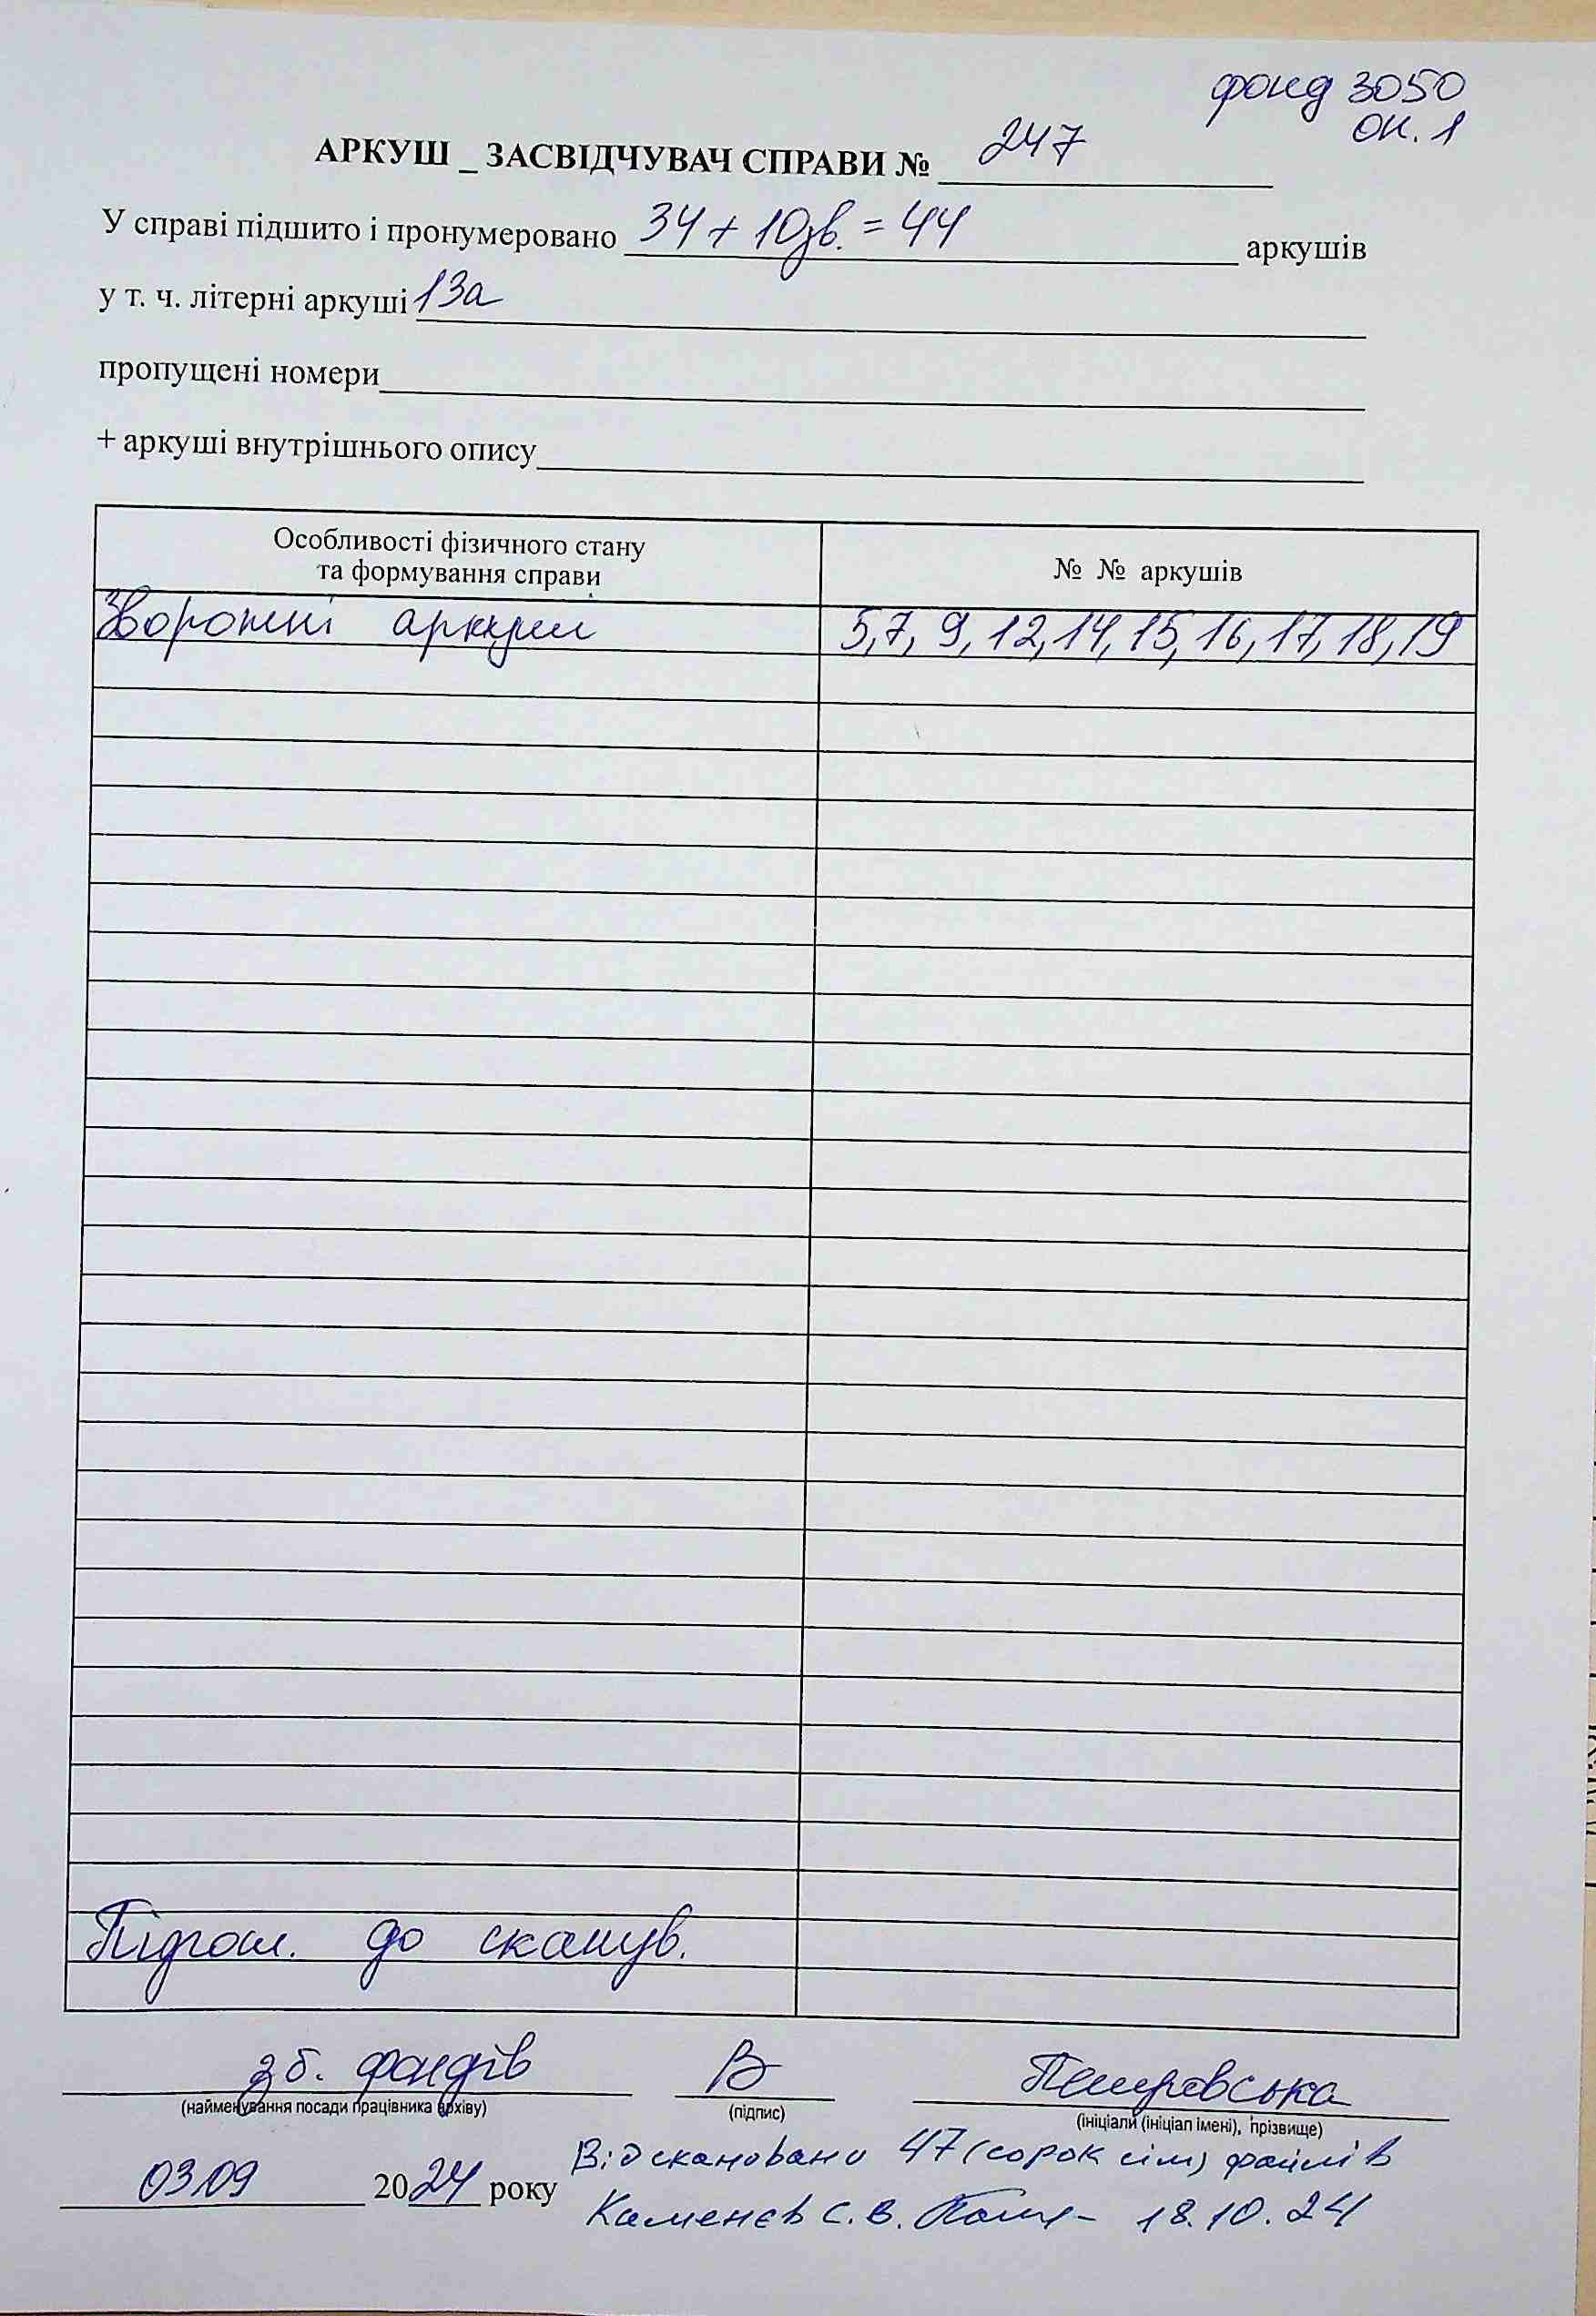 фонд 3050
оп. 1
АРКУШ _ ЗАСВІДЧУВАЧ СПРАВИ № 247
У справі підшито і пронумеровано 34 + 10зв. = 44 аркушів
у т. ч. літерні аркуші 13а
пропущені номери
+ аркуші внутрішнього опису
Особливості фізичного стану
та формування справи
№ № аркушів
Зворотні аркуші 5, 7, 9, 12, 14, 15, 16, 17, 18, 19
Підгот. до сканув.
зб. фондів В Петровська
(найменування посади працівника архіву) (підпис) (ініціали (ініціал імені), прізвище)
Відскановано 47 (сорок сім) файлів
03.09 2024 року
Каменєв С. В. 18.10.24